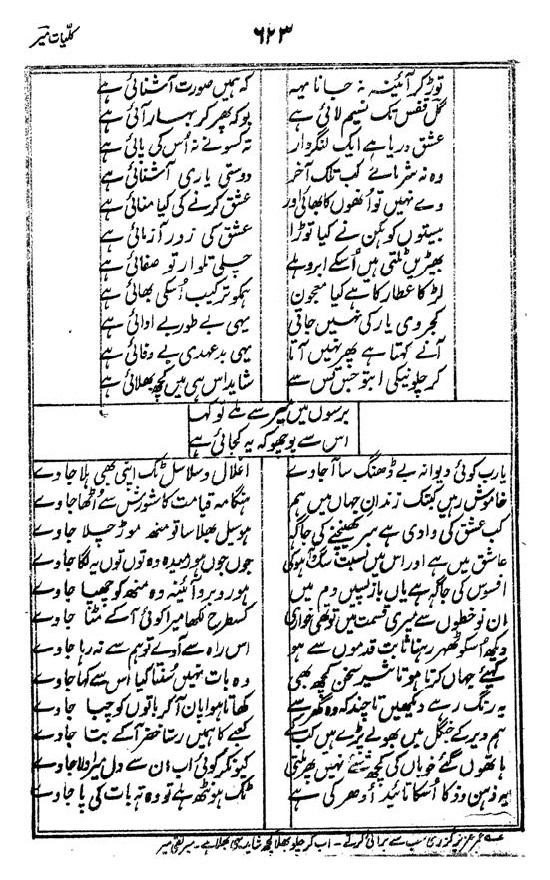 کلیات میر
۶۲۳
توڑ کر آئینہ نہ جانا یہ کہ ہمیں صورت آشنائی ہے
گل قفس تک نسیم لائی ہے بو کہ پھر کر بہار آئی ہے
عشق دریا ہے ایک لنگردار تہ کسو نے نہ اُس کی پائی ہے
وہ نہ شرماوے کب تلک آخر دوستی یاری آشنائی ہے
وے نہیں تو اُنھوں کا بھائی اور عشق کرنے کی کیا منائی ہے
بیستوں کوہکن نے کیا توڑا عشق کی زور آزمائی ہے
بھیڑیں ٹلتی ہیں اُسکے ابرو ہلے چلی تلوار تو صفائی ہے
لڑکا عطار کا ہے کیا معجون ہمکو ترکیب اُسکی بھائی ہے
کجروی یار کی نہیں جاتی یہی بے طور بے ادائی ہے
آنے کہتا ہے پھر نہیں آتا یہی بدعہدی بے وفائی ہے
کر چلو نیکی اب تو جس تس سے شاید اس ہی میں کچھ بھلائی ہے
برسوں میں میر سے ملے تو کہا
اس سے پوچھو کہ یہ کجائی ہے
یارب کوئی دیوانہ بے ڈھنگ سا آجاوے اغلال و سلاسل ٹک اپنی بھی ہلا جاوے
خاموش رہیں کبتک زندان جہاں میں ہم ہنگامہ قیامت کا شورش سے اُٹھا جاوے
کب عشق کی وادی ہے سر کھینچنے کی جاگہ ہو سیل بھلا سا تو منھ موڑ چلا جاوے
عاشق میں ہے اور اس میں نسبت سگ و آہو کی جوں جوں ہو رمیدہ وہ توں توں یہ لگا جاوے
افسوس کی جاگہ ہے یاں باز پسیں دم میں ہو روبرو آئینہ وہ منھ کو چھپا جاوے
ان نو خطوں سے میری قسمت میں تو تھی خواری کسطرح لکھا میرا کوئی آکے مٹا جاوے
دیکھ اُسکو ٹھہر رہنا ثابت قدموں سے ہو اس راہ سے آوے تو ہم سے نہ رہا جاوے
کہئیے جہاں کرتا ہو تاثیر سخن کچھ بھی وہ بات نہیں سنتا کیا اس سے کہا جاوے
یہ رنگ رہے دیکھیں تا چند کہ وہ گھر سے کھاتا ہوا پان آکر باتوں کو چبا جاوے
ہم دیر کے جنگل میں بھولے پڑے ہیں کب کے کعبے کا ہمیں رستا خضر آکے بتا جاوے
ہاتھوں گئے خوباں کی کچھ شے نہیں پھر ملتی کیونکر کوئی اب ان سے دل میر دلا جاوے
یہ ذہن و ذکا اُسکا تائید اُدھر کی ہے ٹک ہونٹھ ہلے تو وہ تہ بات کی پا جاوے
عمر عزیز گزری سب سے برائی کرتے ۔ اب کر چلو بھلا کچھ شاید یہی بھلا ہے ۔ میر تقی میر